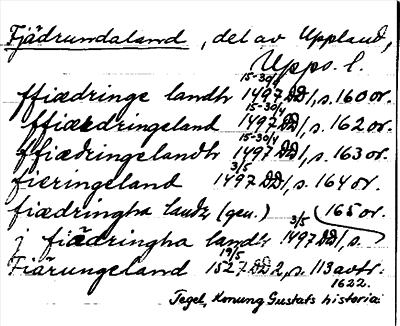 Fjädrundaland, del av Uppland,
Upps. l.
ffiædringe landh 15-30/4 1497 DD 1, s. 160 or.
ffiædringeland 15-30/4 1497 DD 1, s. 162 or.
ffiædringelandh 15-30/4 1497 DD 1, s. 163 or.
fieringeland 3/5 1497 DD 1, s. 164 or.
fiædringha landz (gen.) 165 or.
j fiädringha landh 3/5 1497 DD 1, s.
Fiärungeland 19/5 1527 DD 2, s. 113 avtr.
1622.
Tegel, Konung Gustafs historia